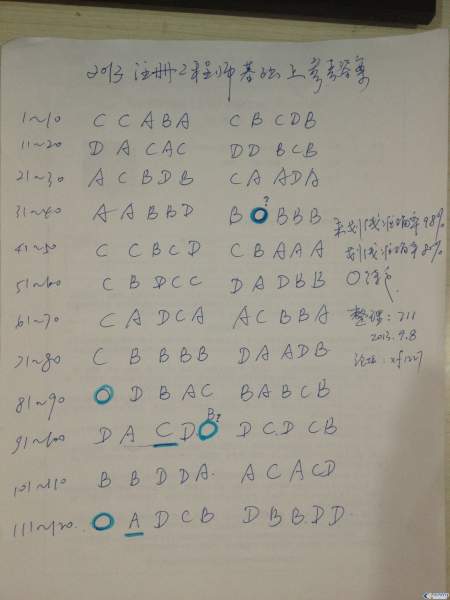 2013 注册工程师基础上参考答案
1~10 C C A B A C B C D B
11~20 D A C A C D D B C B
21~30 A C B D B C A A D A
31~40 A A B B D B O? B B B
未划线准确率98%
41~50 C C B C D C B A A A
划线准确率80%
51~60 C B D C C D A D B B
61~70 C A D C A A C B B A
整理: 711
2013.9.8
71~80 C B B B B D A A D B
论坛: xf1227
81~90 O D B A C B A B C B
91~100 D A C D O B? D C D C B
101~110 B B D D A A C A C D
111~120 O A D C B D B B D D